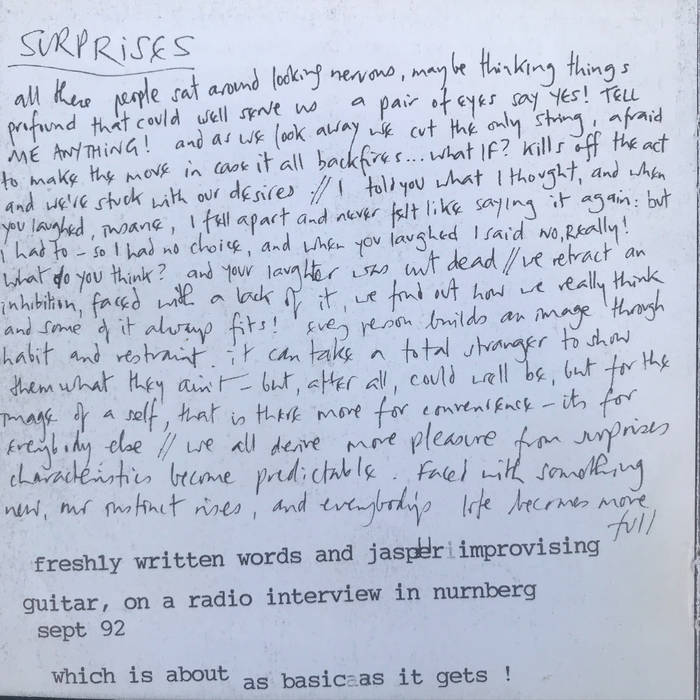 SURPRISES
all these people sat around looking nervous, maybe thinking things
profound that could well serve us a pair of eyes say YES! TELL
ME ANYTHING! and as we look away we cut the only string, afraid
to make the move in case it all backfires... what IF? kills off the act
and we're stuck with our desires // I told you what I thought, and when
you laughed, insane, I fell apart and never felt like saying it again: but
I had to - so I had no choice, and when you laughed I said NO, REally!
what do you think? and your laughter was cut dead // we retract an
inhibition, faced with a lack of it, we find out how we really think
and some of it always fits! every person builds an image through
habit and restraint. it can take a total stranger to show
them what they ain't - but, after all, could well be, but for the
image of a self, that is there more for convenience - its for
everybody else // we all derive more pleasure from surprises
characteristics become predictable. faced with something
new, our instinct rises, and everybody's life becomes more
full
freshly written words and jasper improvising
guitar, on a radio interview in nurnberg
sept 92
which is about as basic as it gets !